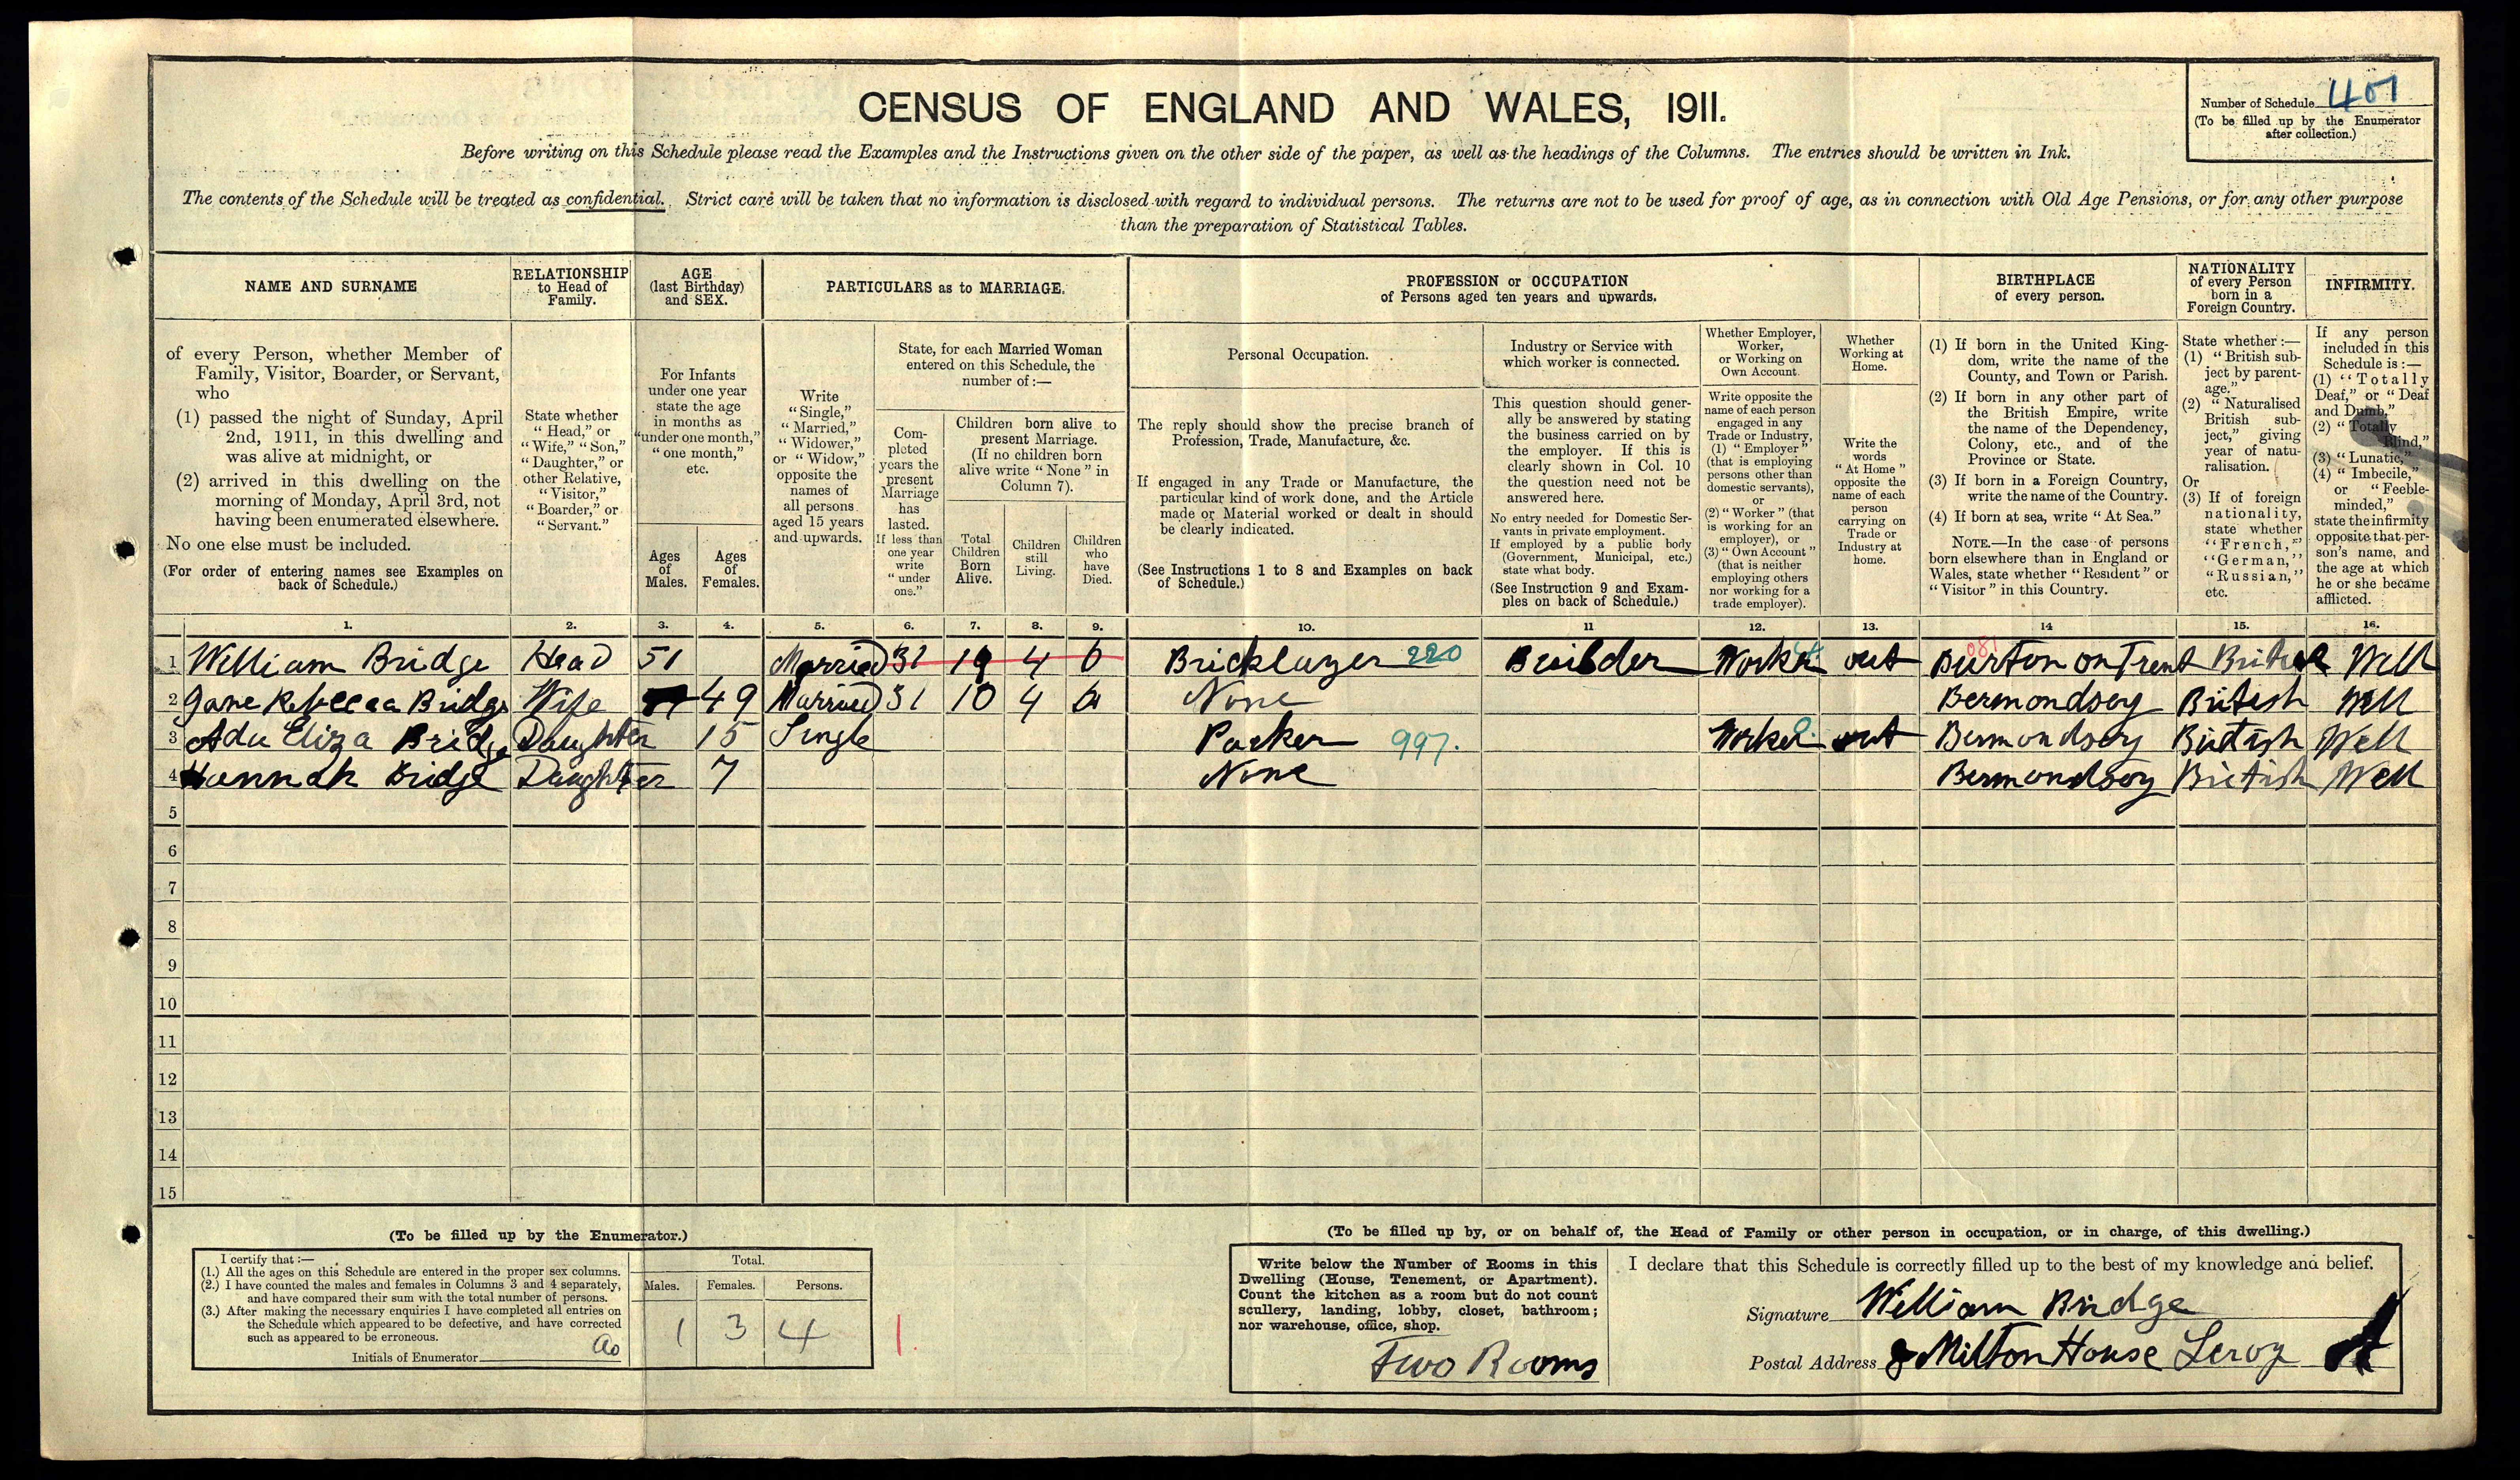 CENSUS OF ENGLAND AND WALES, 1911.
Number of Schedule 401
(To be filled up by the Enumerator
after collection.)
Before writing on this Schedule please read the Examples and the Instructions given on the other side of the paper, as well as the headings of the Columns. The entries should be written in Ink.
The contents of the Schedule will be treated as confidential. Strict care will be taken that no information is disclosed with regard to individual persons. The returns are not to be used for proof of age, as in connection with Old Age Pensions, or for any other purpose
than the preparation of Statistical Tables.
NAME AND SURNAME
of every Person, whether Member of
Family, Visitor, Boarder, or Servant,
who
(1) passed the night of Sunday, April
2nd, 1911, in this dwelling and
was alive at midnight, or
(2) arrived in this dwelling on the
morning of Monday, April 3rd, not
having been enumerated elsewhere.
No one else must be included.
(For order of entering names see Examples on
back of Schedule.)
RELATIONSHIP
to Head of
Family.
State whether
"Head," or
"Wife," "Son,"
"Daughter," or
other Relative,
"Visitor,"
"Boarder," or
"Servant."
AGE
(last Birthday)
and SEX.
For Infants
under one year
state the age
in months as
"under one month,"
"one month,"
etc.
Ages
of
Males.
Ages
of
Females.
PARTICULARS as to MARRIAGE.
Write
"Single,"
"Married,"
"Widower,"
or "Widow,"
opposite the
names of
all persons
aged 15 years
and upwards.
State, for each Married Woman
entered on this Schedule, the
number of:—
Com-
pleted
years the
present
Marriage
has
lasted.
If less than
one year
write
"under
one."
Children born alive to
present Marriage.
(If no children born
alive write "None" in
Column 7).
Total
Children
Born
Alive.
Children
still
Living.
Children
who
have
Died.
PROFESSION or OCCUPATION
of Persons aged ten years and upwards.
Personal Occupation.
The reply should show the precise branch of
Profession, Trade, Manufacture, &c.
If engaged in any Trade or Manufacture, the
particular kind of work done, and the Article
made or Material worked or dealt in should
be clearly indicated.
(See Instructions 1 to 8 and Examples on back
of Schedule.)
Industry or Service with
which worker is connected.
This question should gener-
ally be answered by stating
the business carried on by
the employer. If this is
clearly shown in Col. 10
the question need not be
answered here.
No entry needed for Domestic Ser-
vants in private employment.
If employed by a public body
(Government, Municipal, etc.)
state what body.
(See Instruction 9 and Exam-
ples on back of Schedule.)
Whether Employer,
Worker,
or Working on
Own Account.
Write opposite the
name of each person
engaged in any
Trade or Industry,
(1) "Employer"
(that is employing
persons other than
domestic servants),
or
(2) "Worker" (that
is working for an
employer), or
(3) "Own Account"
(that is neither
employing others
nor working for a
trade employer).
Whether
Working at
Home.
Write the
words
"At Home"
opposite the
name of each
person
carrying on
Trade or
Industry at
home.
BIRTHPLACE
of every person.
(1) If born in the United King-
dom, write the name of the
County, and Town or Parish.
(2) If born in any other part of
the British Empire, write
the name of the Dependency,
Colony, etc., and of the
Province or State.
(3) If born in a Foreign Country,
write the name of the Country.
(4) If born at sea, write "At Sea."
NOTE.—In the case of persons
born elsewhere than in England or
Wales, state whether "Resident" or
"Visitor" in this Country.
NATIONALITY
of every Person
born in a
Foreign Country.
State whether:—
(1) "British sub-
ject by parent-
age."
(2) "Naturalised
British sub-
ject," giving
year of natu-
ralisation.
Or
(3) If of foreign
nationality,
state whether
"French,"
"German,"
"Russian,"
etc.
INFIRMITY.
If any person
included in this
Schedule is:—
(1) "Totally
Deaf," or "Deaf
and Dumb,"
(2) "Totally
Blind,"
(3) "Lunatic,"
(4) "Imbecile,"
or "Feeble-
minded,"
state the infirmity
opposite that per-
son's name, and
the age at which
he or she became
afflicted.
1. 2. 3. 4. 5. 6. 7. 8. 9. 10. 11 12. 13. 14 15. 16.
1 William Bridge Head 51 Married 31 10 4 6 Bricklayer 220 Builder Worker out 081 Burton on Trent British Well
2 Jane Rebecca Bridge Wife 49 Married 31 10 4 6 None Bermondsey British Well
3 Ada Eliza Bridge Daughter 15 Single Packer 997. Worker out Bermondsey British Well
4 Hannah Bridge Daughter 7 None Bermondsey British Well
5
6
7
8
9
10
11
12
13
14
15
(To be filled up by the Enumerator.)
I certify that:—
(1.) All the ages on this Schedule are entered in the proper sex columns.
(2.) I have counted the males and females in Columns 3 and 4 separately,
and have compared their sum with the total number of persons.
(3.) After making the necessary enquiries I have completed all entries on
the Schedule which appeared to be defective, and have corrected
such as appeared to be erroneous.
Initials of Enumerator
Total.
Males. Females. Persons.
1 3 4
1.
(To be filled up by, or on behalf of, the Head of Family or other person in occupation, or in charge, of this dwelling.)
Write below the Number of Rooms in this
Dwelling (House, Tenement, or Apartment).
Count the kitchen as a room but do not count
scullery, landing, lobby, closet, bathroom;
nor warehouse, office, shop.
Two Rooms
I declare that this Schedule is correctly filled up to the best of my knowledge and belief.
Signature William Bridge
Postal Address 8 Milton House Leroy St